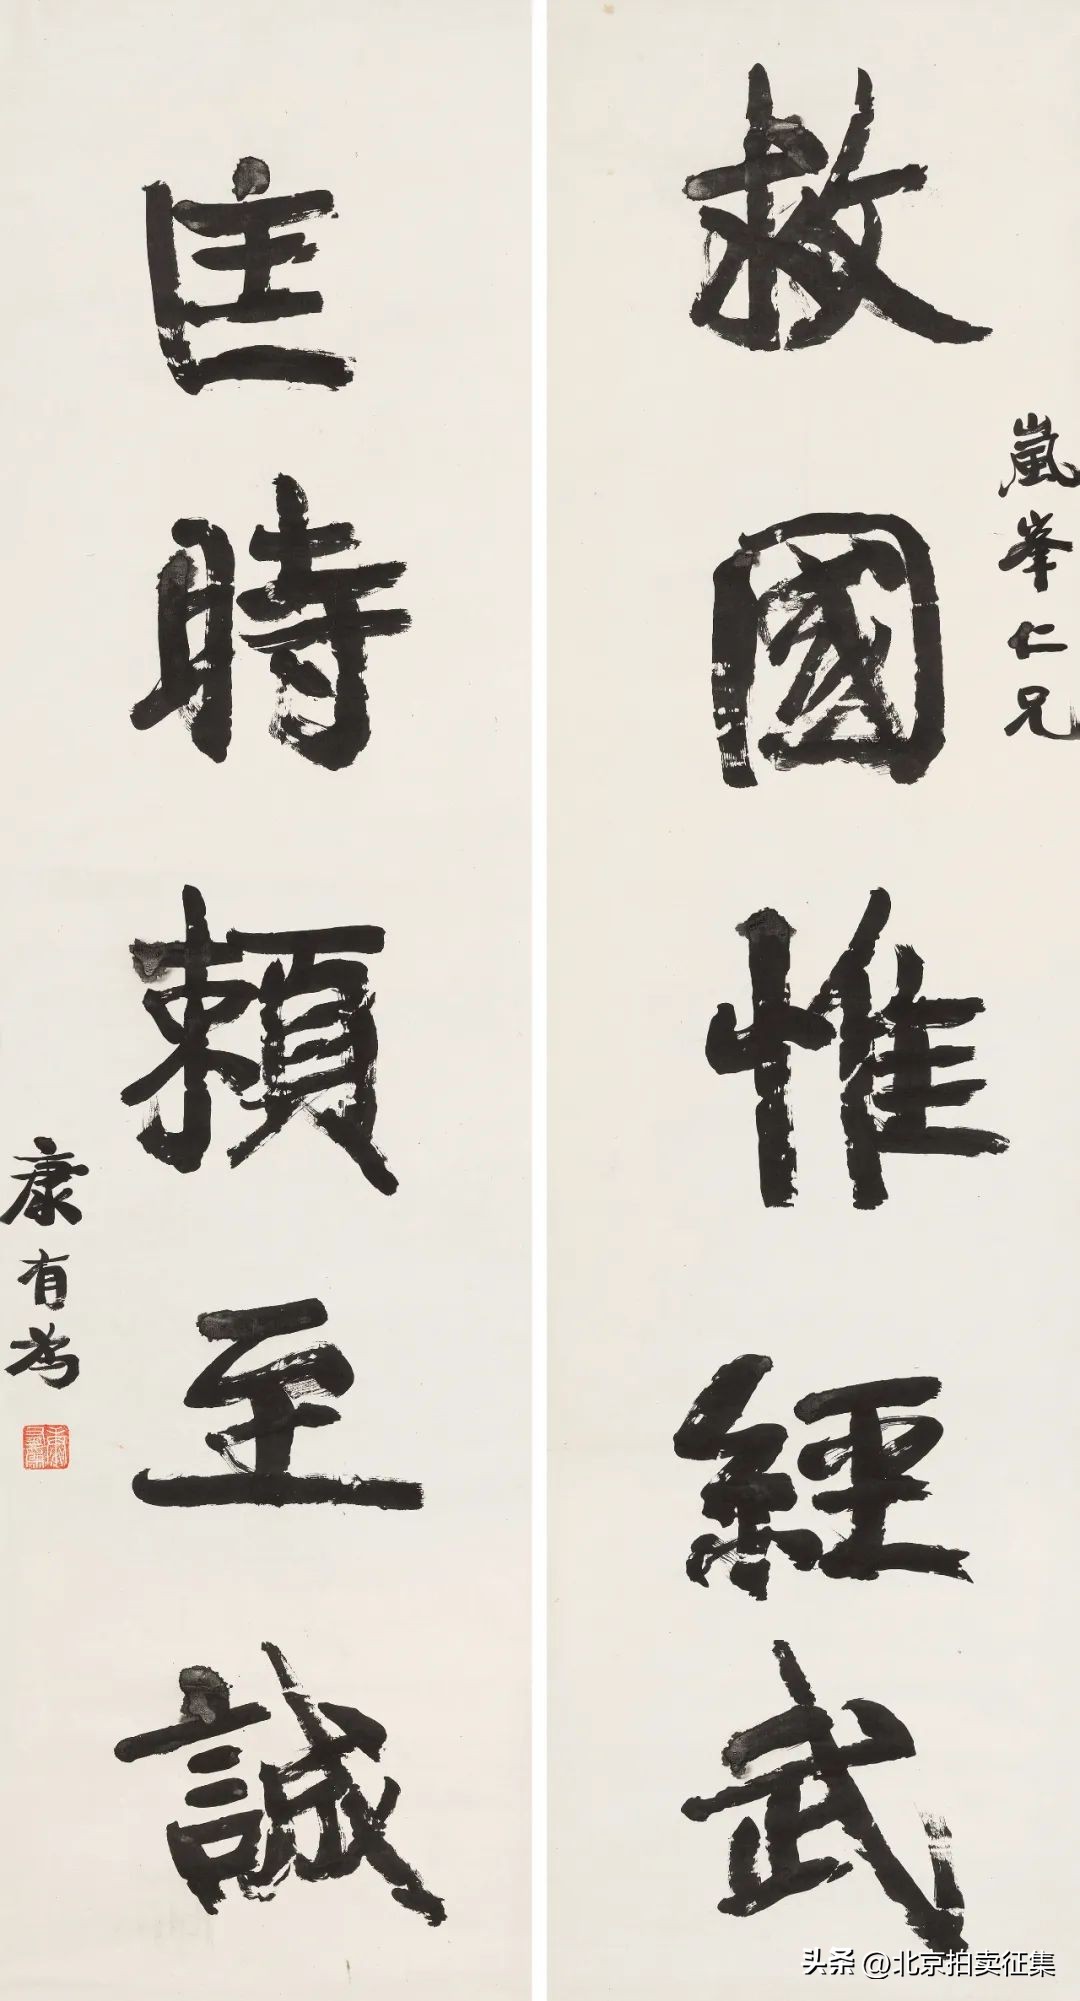 嵐峯仁兄
救國惟經武
匡時賴至誠
康有為
头条 @北京拍卖征集